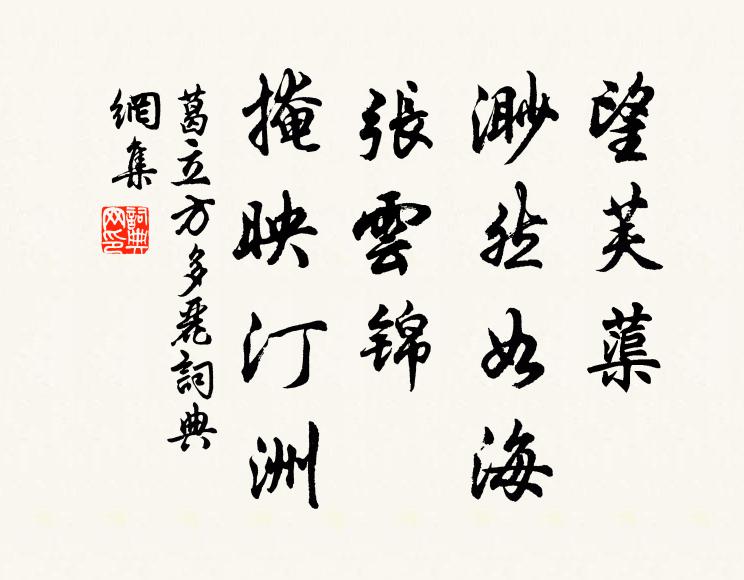 望芙蕖
渺然如海
張雲錦
掩映汀洲
葛立方多麗詞典
網集
詞典
网印